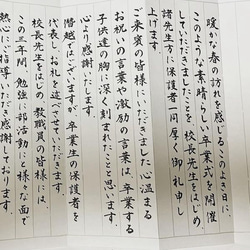 暖かな春の訪れを感じるこのよき日に、
このような素晴らしい卒業式を開催
していただきましたことを校長先生をはじめ
諸先生方に保護者一同厚く御礼申し
上げます。
ご来賓の皆様にいただきました心温まる
お祝いの言葉や激励の言葉は、卒業する
子供達の胸に深く刻まれたことと思います。
心より感謝いたします。
僭越ではございますが、卒業生の保護者を
代表し、お礼を述べさせていただきます。
校長先生をはじめ教職員の皆様には、
この三年間、勉強に部活動にと様々な面で
熱心にご指導いただき感謝しております。